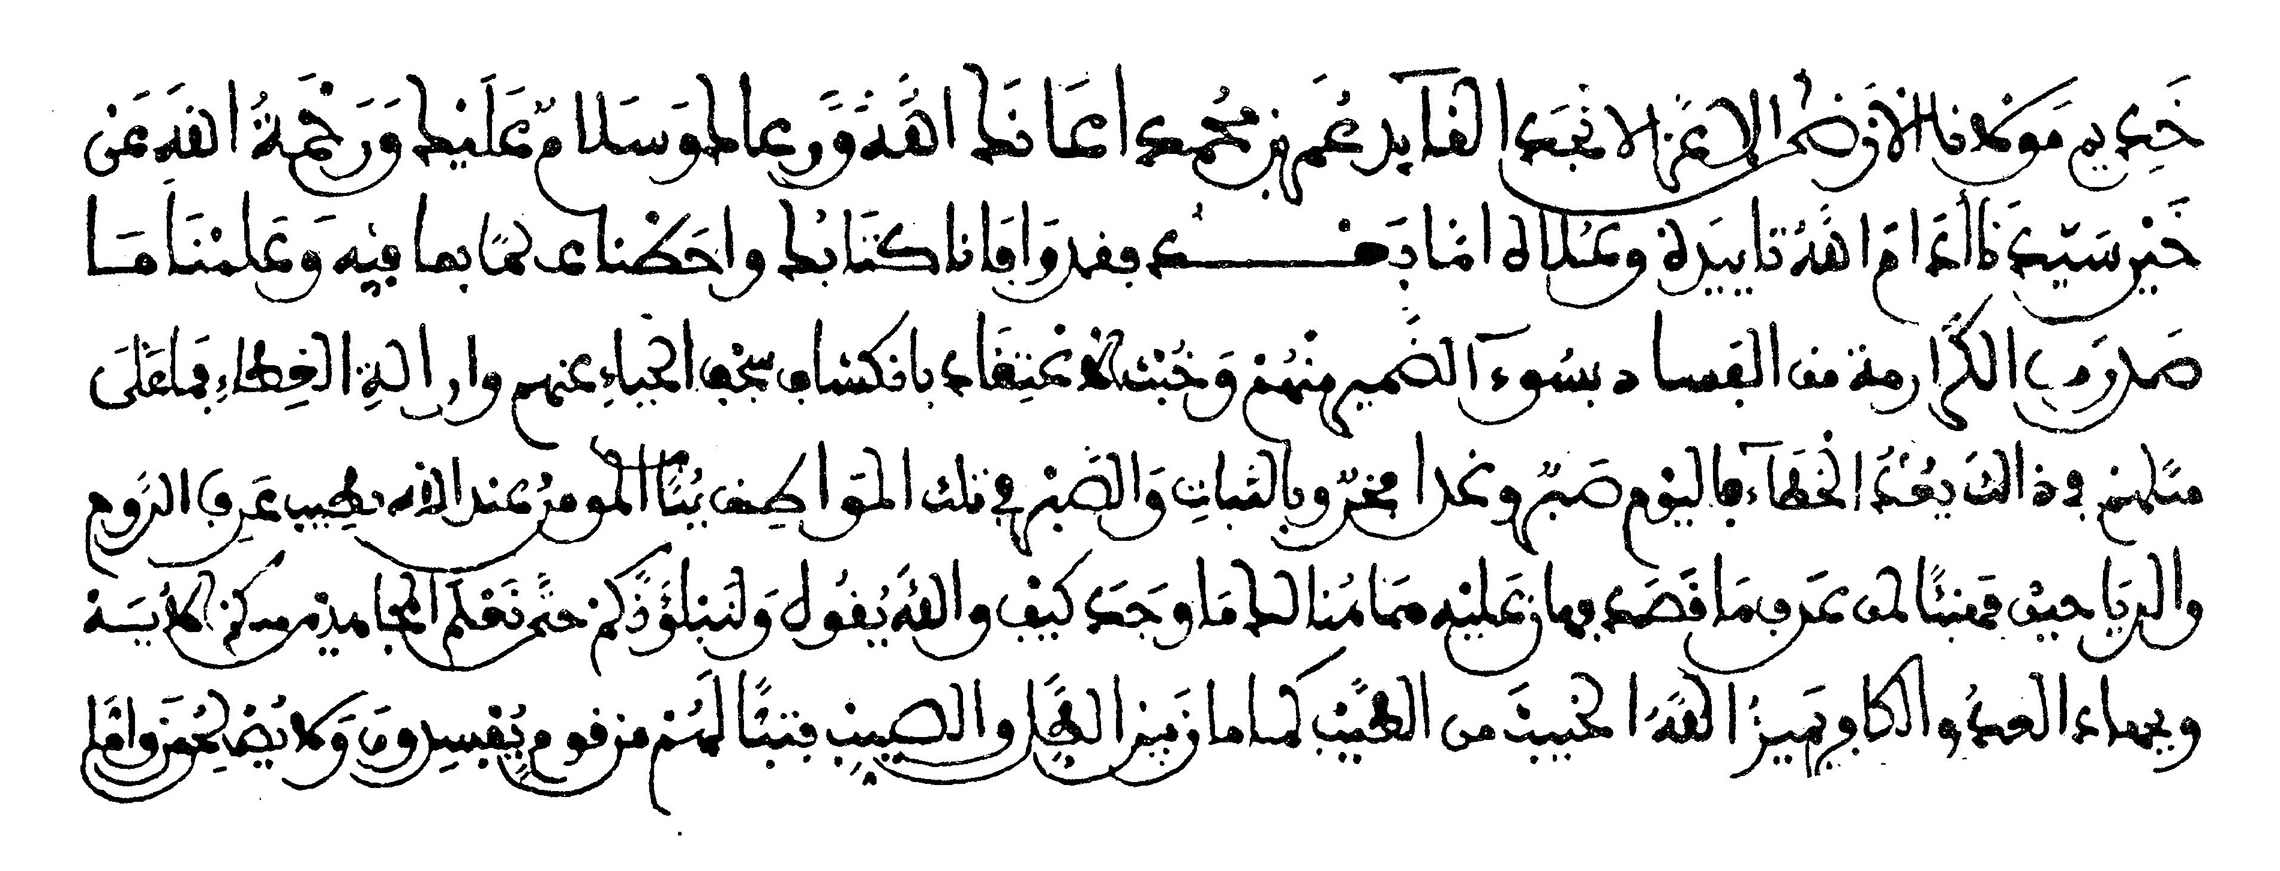 خَدِيم مَوْلانا الأرْضى الاعزّ الانجَد الفآيد عُمَر بن محمّد اعَانَكَ اللهُ وَرعاك وَسَلامٌ عَلَيْكَ وَرَحْمَةُ اللهِ عَن
خَيْر سَيّدِنَا أدَامَ اللهُ تاييدَهُ وعُلاه امّا بَعْد فقد وَافَانا كتَابُك واحَطْنا علمًا بما فِيه وَعَلِمْنَا مَا
صَدَرَ من الگرارمة من الفَساد بسُوءِ الضّمير مِنْهُمْ وَخُبْث الاعْتِقَاد بانكشاب سجْف الحياءِ عنهم وازالةِ الغِطاءِ فَما عَلَى
مثلهم في ذالك يُعَدُّ الخَطَآءُ فاليَوْم صَبْرٌ وغدا فخرٌ وبالثّباتِ وَالصَّبْر في تلك المَوَاطِن يُنَبَّأ المومنُ عند الله بطِيب عَرف الرَّوح
والرّيَاحين فهنيئًا لمن عَرف مَا قَصَد وهان عَليْه ممّا مُنالك مَا وجَد كيْف واللهُ يَقُول وَلَنَبْلُوَنَّكُمْ حتّى نَعْلَمَ المجاهدين منكم الآيَة
وبجهاد العدوّ والكافر يَميزُ اللهُ الخبيثَ من الطيّب كما مازَ ميز الطيّ والصيب فتبًّا لَهُمْ من قوم يُفْسِدون وَلا يُصْلِحُون وامّا